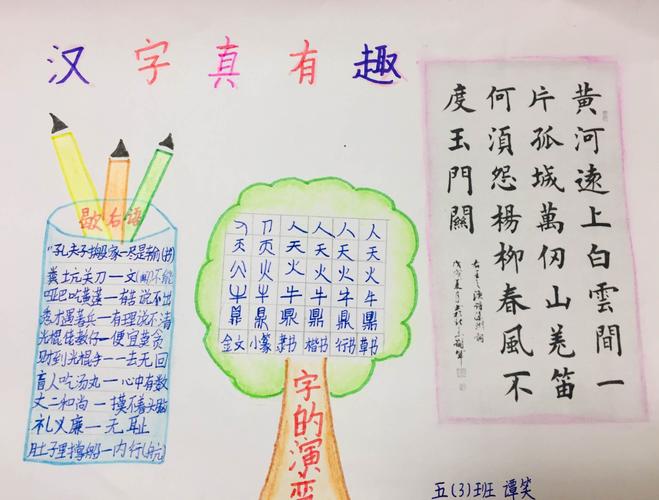 汉字真有趣
歇后语
"孔夫子搬家一尽是输(书)
粪土坑关刀一文(闻)不能
哑巴吃黄莲一有苦说不出
秀才遇着兵一有理说不清
光棍佬教仔一便宜莫贪
财到光棍手一一去无回
盲人吃汤丸一心中有数
丈二和尚一摸不着头脑
礼义廉一无耻
肚子里撑船一内行(航)
人 人 人 人
天 天 天 天
火 火 火 火
牛 牛 牛 牛
鼎 鼎 鼎 鼎 鼎
金文 小篆 隶书 楷书 行书 草书
字的演变
黄河遠上白雲間一
片孤城萬仞山羌笛
何須怨楊柳春風不
度玉門關
五(3)班 谭笑